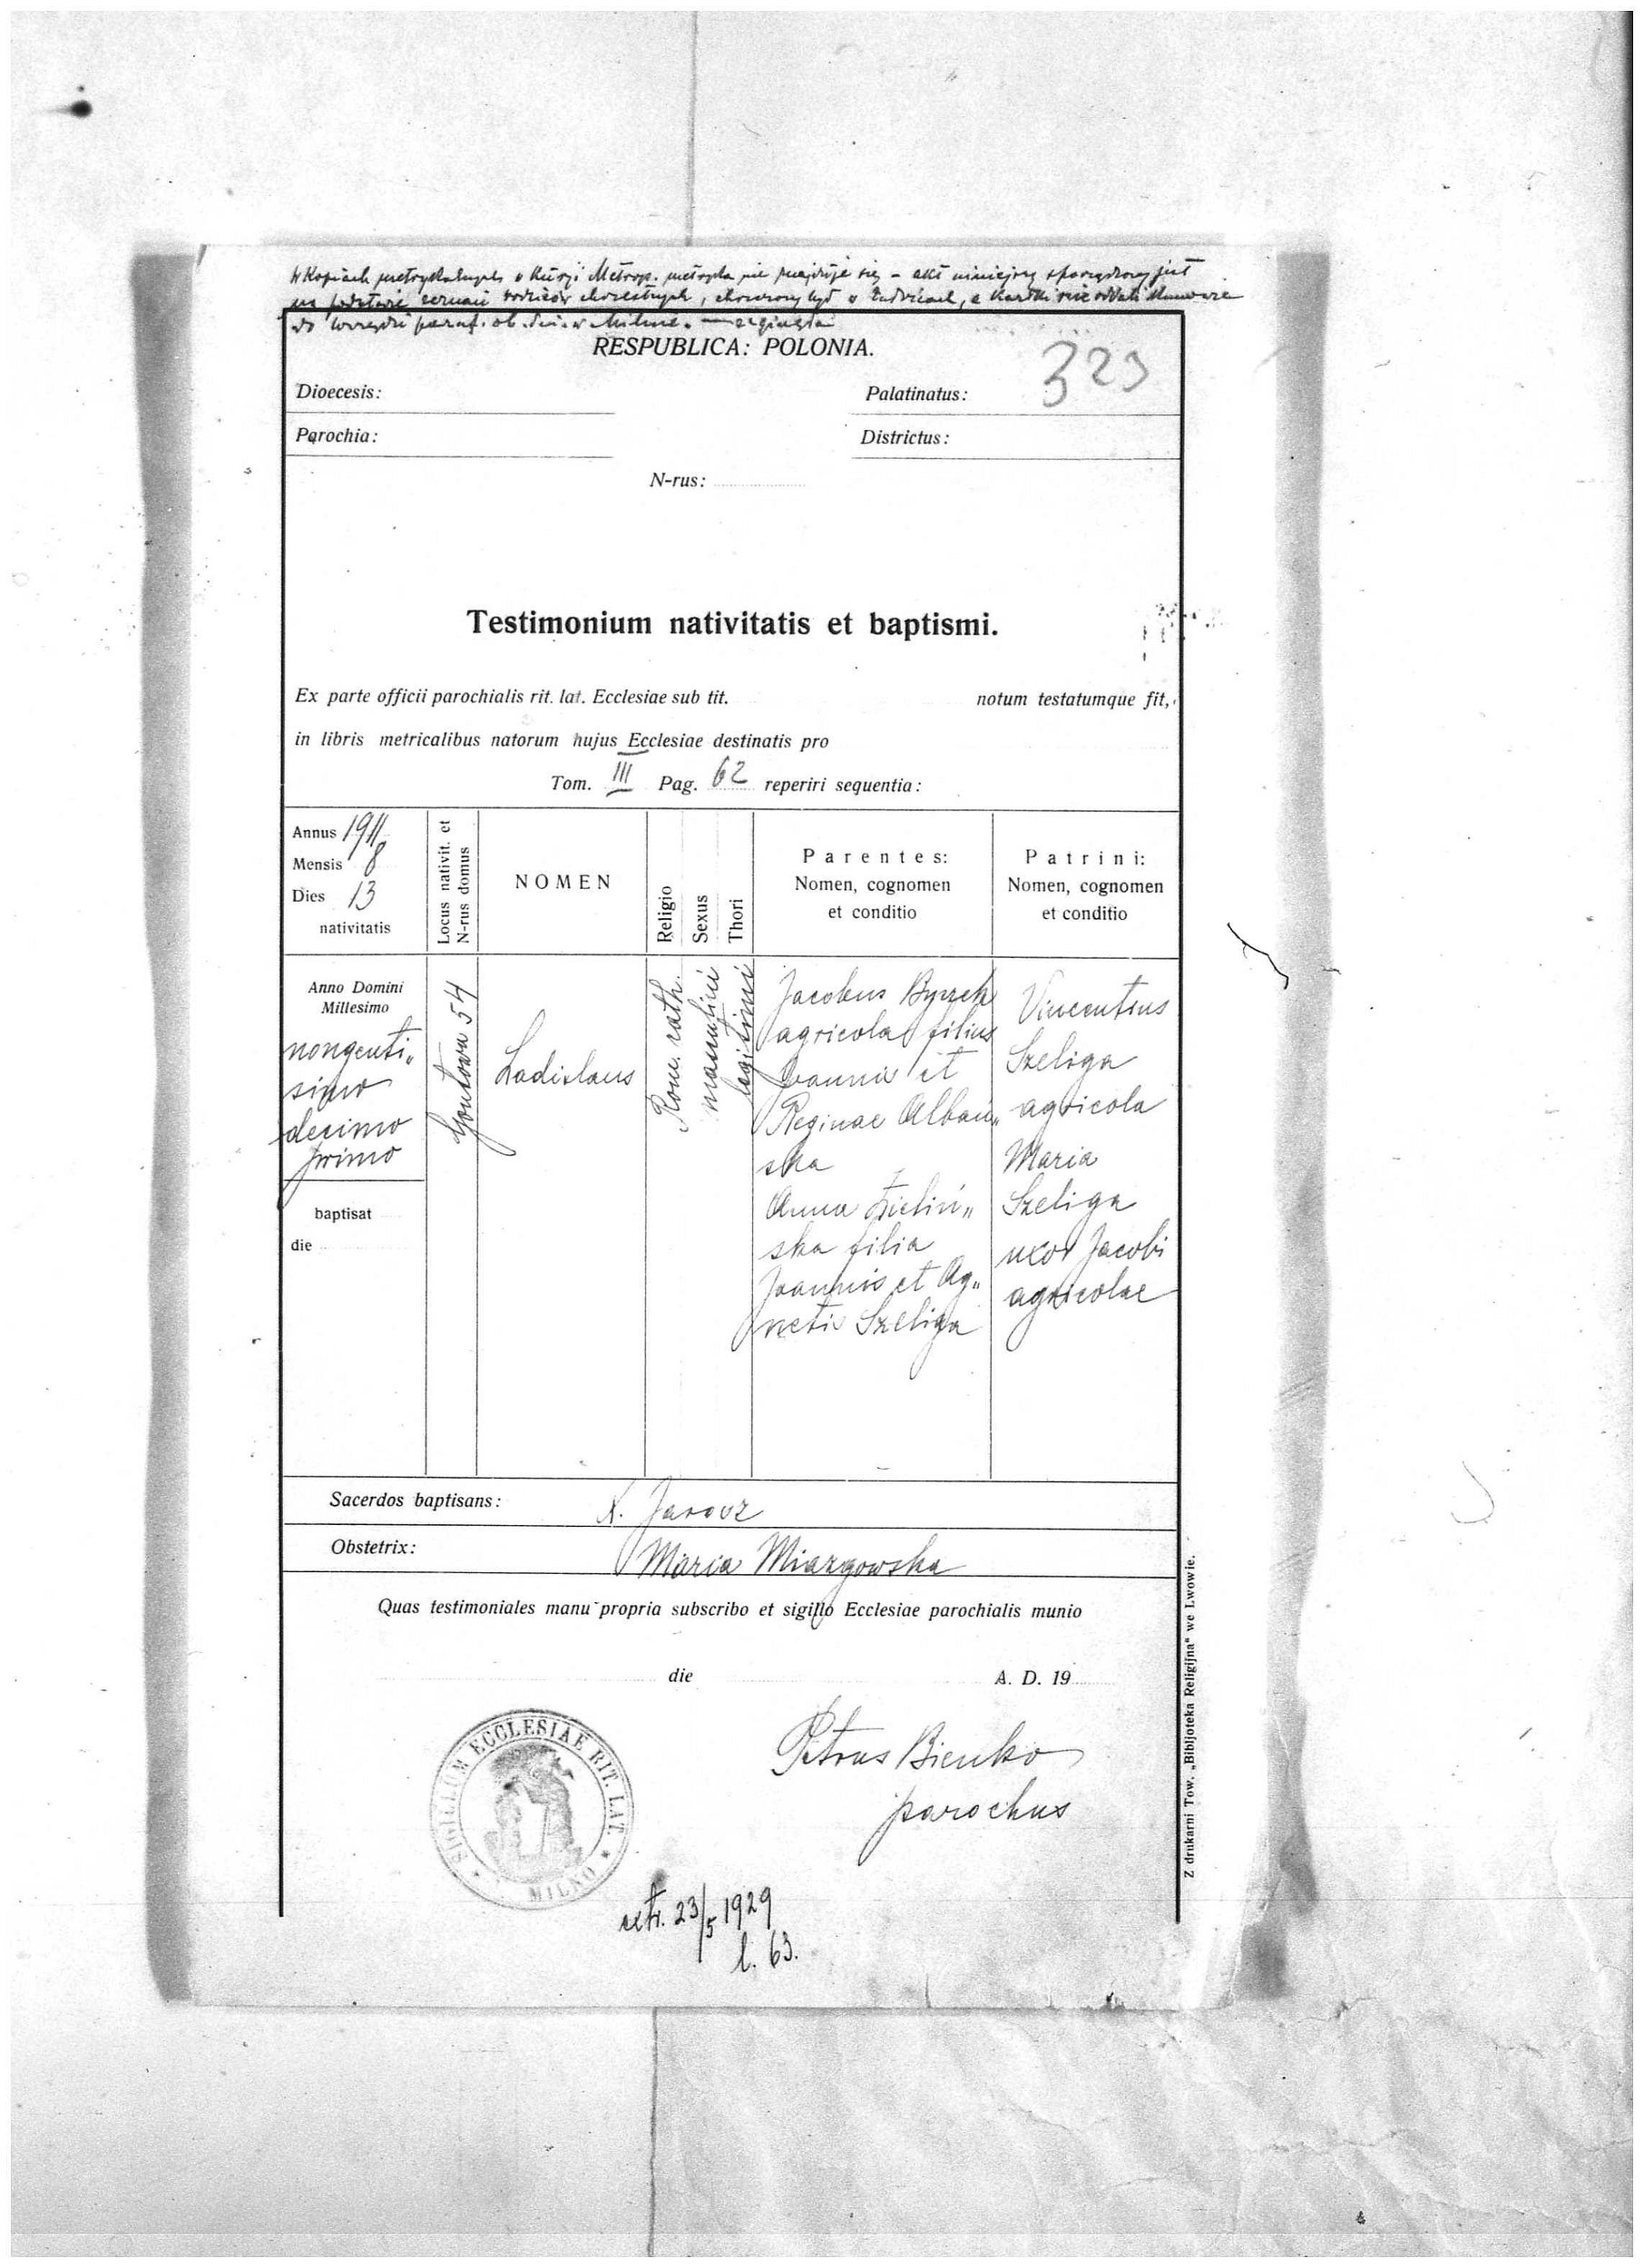 w Kopiach metrykalnych w Kurji Metrop. metryka nie znajduje się – akt niniejszy sporządzony jest
na podstawie zeznań rodziców chrzestnych, chrzczony był w, a kartki nie oddali
do urzędu paraf. ob. łać. w Milnie. — zaginęła
RESPUBLICA: POLONIA.
323
Dioecesis:
Palatinatus:
Parochia:
Districtus:
N-rus:
Testimonium nativitatis et baptismi.
Ex parte officii parochialis rit. lat. Ecclesiae sub tit. notum testatumque fit,
in libris metricalibus natorum hujus Ecclesiae destinatis pro
Tom. III Pag. 62 reperiri sequentia:
Annus 1911
Mensis 8
Dies 13
nativitatis
Locus nativit. et
N-rus domus
NOMEN
Religio
Sexus
Thori
Parentes:
Nomen, cognomen
et conditio
Patrini:
Nomen, cognomen
et conditio
Anno Domini
Millesimo
nongenti„
simo
decimo
primo
baptisat
die
Gontowa 54
Ladislaus
Rom. cath.
masculini
legitimi
Jacobus Byrch
agricola filius
Joannis et
Reginae Albań„
ska
Anna Zieliń„
ska filia
Joannis et Ag„
netis Szeliga
Vincentius
Szeliga
agricola
Maria
Szeliga
uxor Jacobi
agricolae
Sacerdos baptisans: X. Jarosz
Obstetrix: Maria Miazgowska
Quas testimoniales manu propria subscribo et sigillo Ecclesiae parochialis munio
die A. D. 19
SIGILLUM ECCLESIAE RIT. LAT. * MILNO *
Petrus Bieńko
parochus
extr. 23/5 1929
l. 63.
Z drukarni Tow. „Bibljoteka Religijna" we Lwowie.